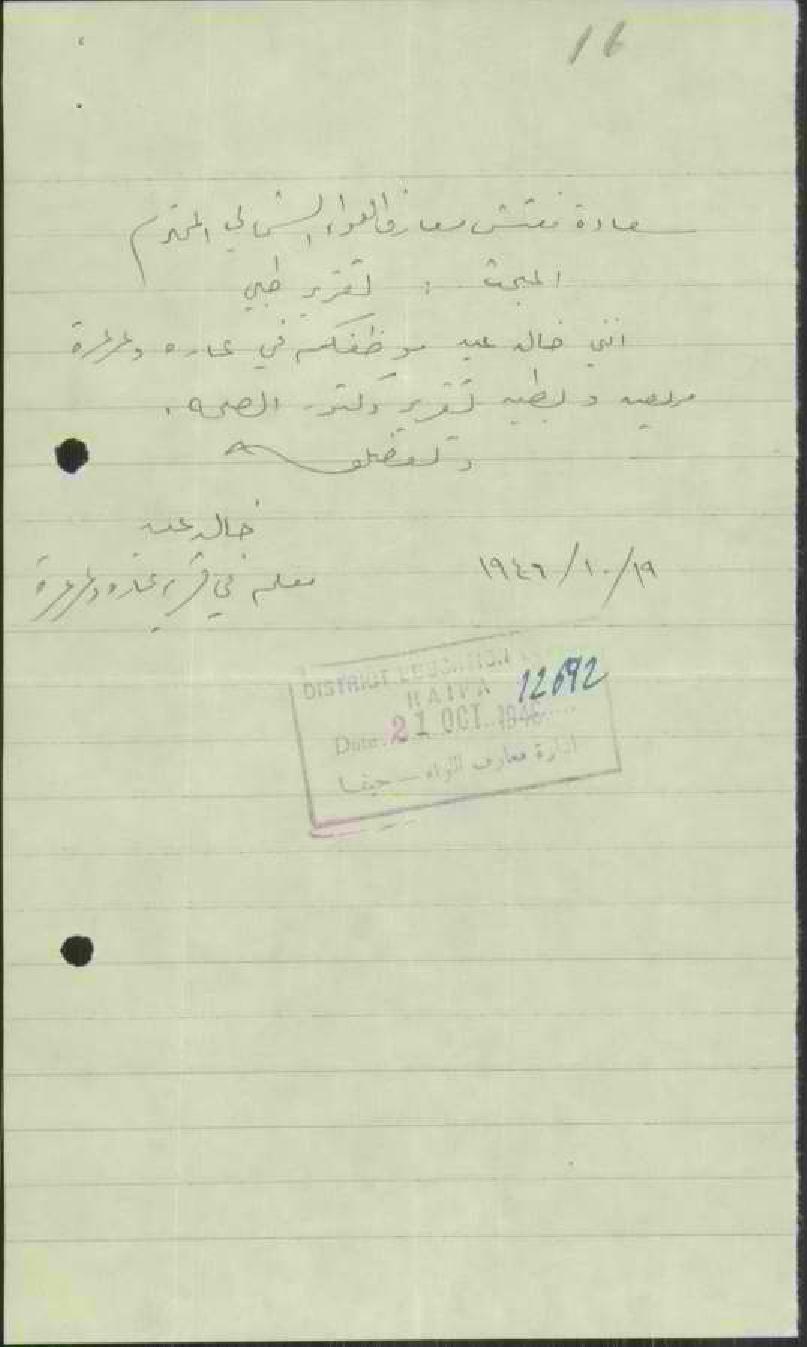 16
سعادة مفتش معارف اللواء الشمالي المحترم
المبحث : تقرير طبي
انني خالد عيد موظفكم في عاره وعرعرة
مريض وبطيه تقرير دكتور الصحه .
وتفضلوا
خالد عيد
معلم في قرية عاره وعرعرة
١٩/١٠/١٩٤٦
DISTRICT EDUCATION
12692
HAIFA
Date 21 OCT 1946
ادارة معارف اللواء — حيفا